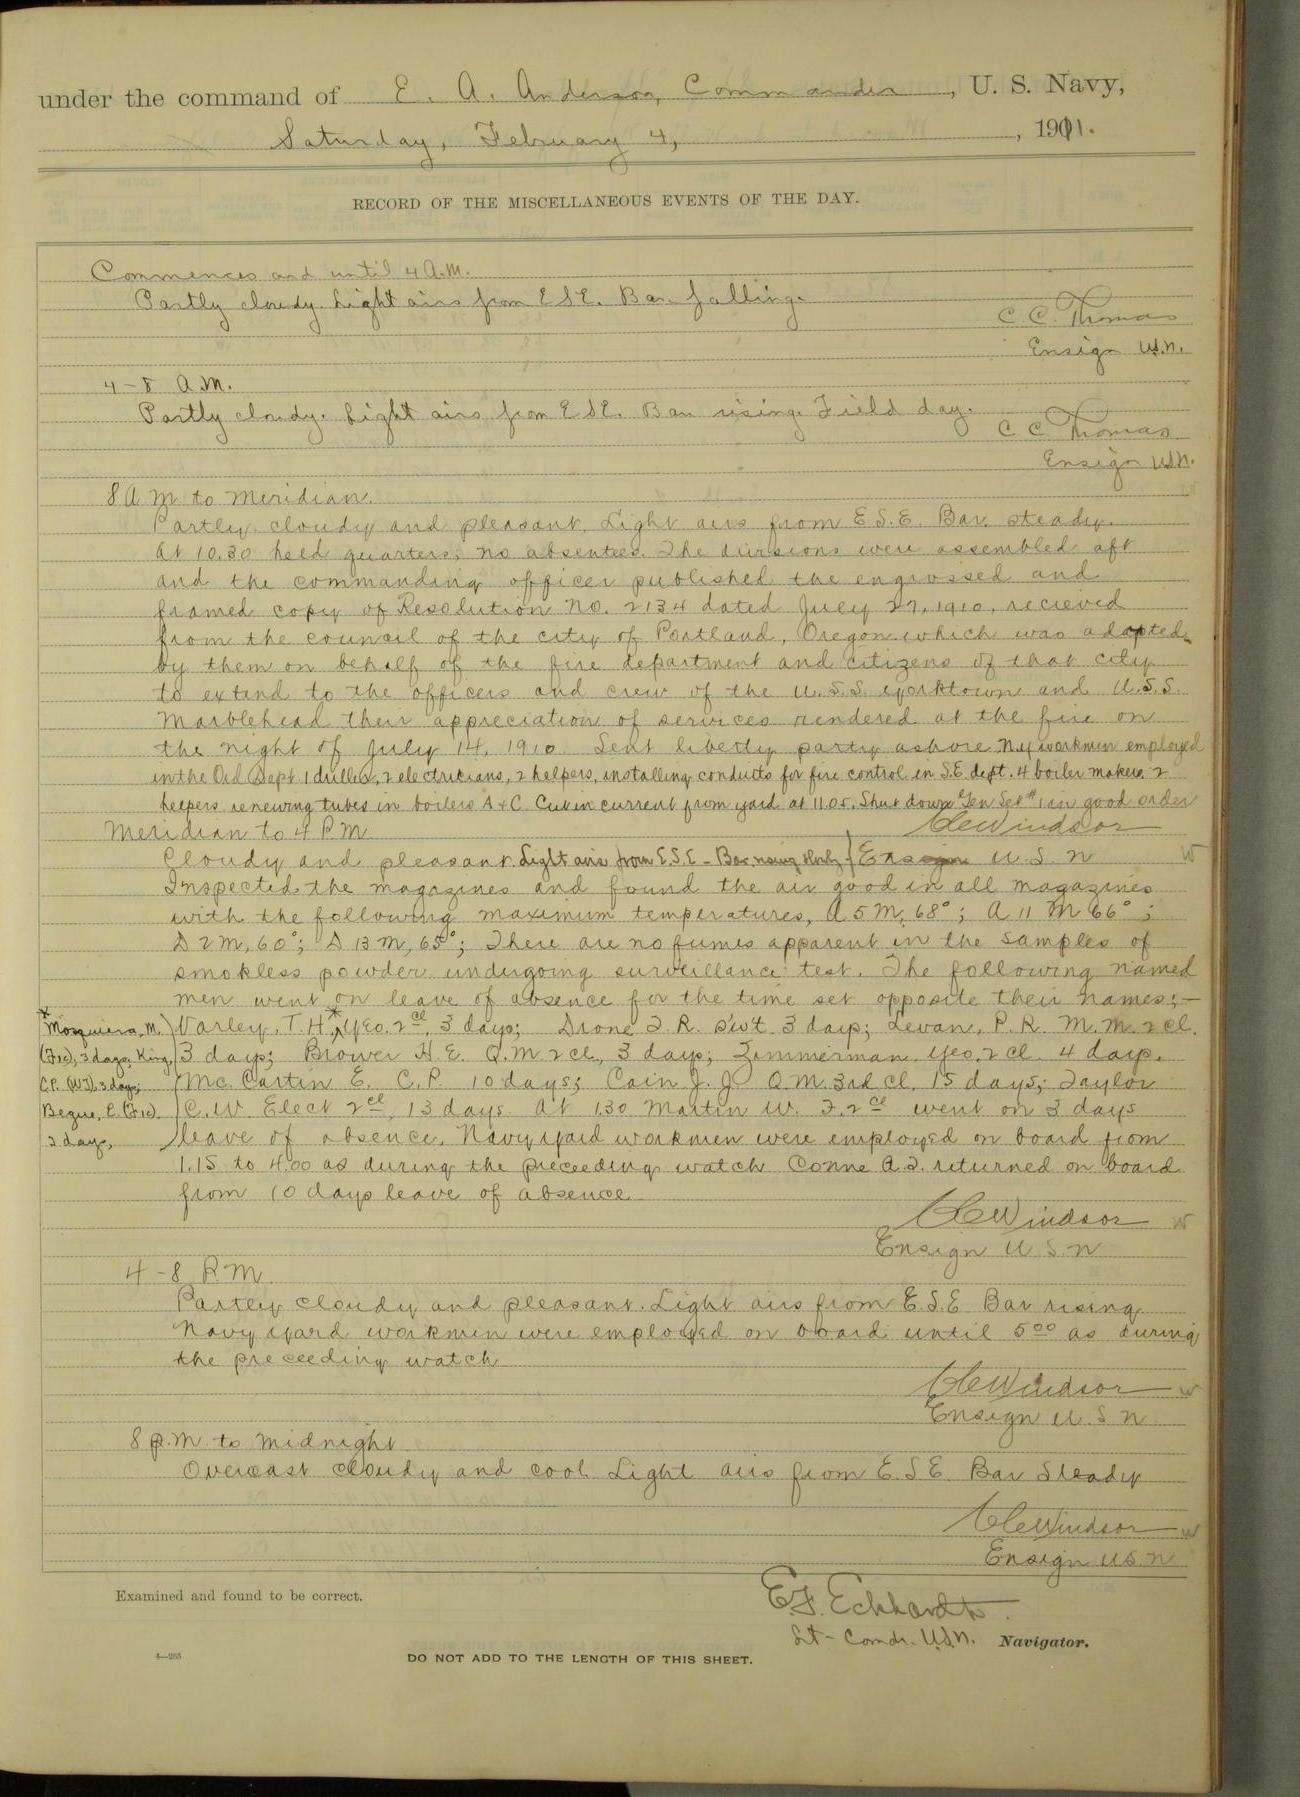 under the command of E. A. Anderson, Commander, U. S. Navy,
Saturday, February 4, 1911.
RECORD OF THE MISCELLANEOUS EVENTS OF THE DAY.
Commences and until 4 A.M.
Partly cloudy. Light airs from ESE. Bar. falling.
C C. Thomas
Ensign U.S.N.
4-8 A.M.
Partly cloudy. Light airs from ESE. Bar. rising. Field day.
C C Thomas
Ensign U.S.N.
8 A M to Meridian.
Partly cloudy and pleasant. Light airs from E.S.E. Bar. steady.
At 10.30 held quarters; no absentees. The divisions were assembled aft
and the commanding officer published the engrossed and
framed copy of Resolution No. 2134 dated July 27, 1910, recieved
from the council of the city of Portland, Oregon. which was adopted
by them on behalf of the fire department and citizens of that city
to extend to the officers and crew of the U.S.S. Yorktown and U.S.S.
Marblehead their appreciation of services rendered at the fire on
the night of July 14, 1910. Sent liberty party ashore. N.Y. workmen employed
in the Ord. Dept. 1 driller, 2 electricians, 2 helpers, installing conduits for fire control in S.E. dept. 4 boiler makers 2
helpers renewing tubes in boilers A & C. Cut in current from yard at 11.05. Shut down Gen Set #1 in good order
Meridian to 4 P M
Windsor
Cloudy and pleasant. Light airs from E.S.E - Bar. rising slowly. Ensign U. S. N
Inspected the magazines and found the air good in all magazines
with the following maximum temperatures, A 5 M, 68°; A 11 M 66°;
D 2 M, 60°; D 13 M, 65°; There are no fumes apparent in the samples of
smokless powder undergoing surveillance test. The following named
men went on leave of absence for the time set opposite their names;-
* Mosquiera, M. (F1c), 3 days, King, C.P. (WT), 3 days; Begue, E. (F1c). 3 days,
Varley, T. H.,* Yeo. 2cl, 3 days; Drone F. R. S'w't 3 days; Levan, P. R. M. M. 2 cl.
3 days; Brower H. E. Q.M 2 cl, 3 days; Zimmerman Yeo, 2 cl. 4 days.
Mc. Cartin E. C. P. 10 days; Cain J. J. Q.M. 3rd cl, 15 days; Taylor
C. W. Elect 2cl, 13 days At 1.30 Martin W. F. 2cl went on 3 days
leave of absence. Navy yard workmen were employed on board from
1.15 to 4.00 as during the preceeding watch Conne A. F. returned on board
from 10 days leave of absence
Windsor
Ensign U S. N
4-8 P.M.
Partly cloudy and pleasant. Light airs from E.S.E Bar rising
Navy yard workmen were employed on board until 5 00 as during
the preceeding watch
Windsor
Ensign U. S N
8 p.m. to midnight
Overcast cloudy and cool. Light airs from E. S. E. Bar Steady
Windsor
Ensign U.S. N
Examined and found to be correct.
E.F. Eckhardt.
Lt-Comdr. U.S.N. Navigator.
4—265
DO NOT ADD TO THE LENGTH OF THIS SHEET.